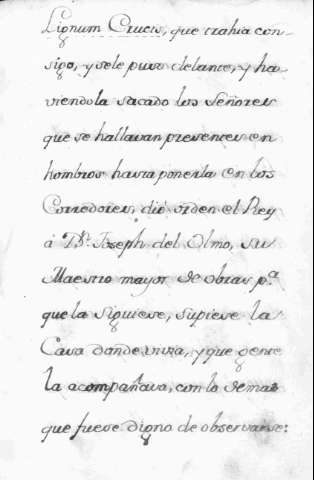 Lignum Crucis, que trahia con-
sigo, y sele puso delante, y ha-
viendola sacado los Señores
que se hallavan presentes en
hombros hasta ponerla en los
Corredores, dió orden el Rey
á Dn. Joseph del Olmo, su
Maestro mayor de obras pa.
que la siguiese, supiese la
Casa donde entra, y que gente
la acompañava, con lo demas
que fuese digno de observarse: